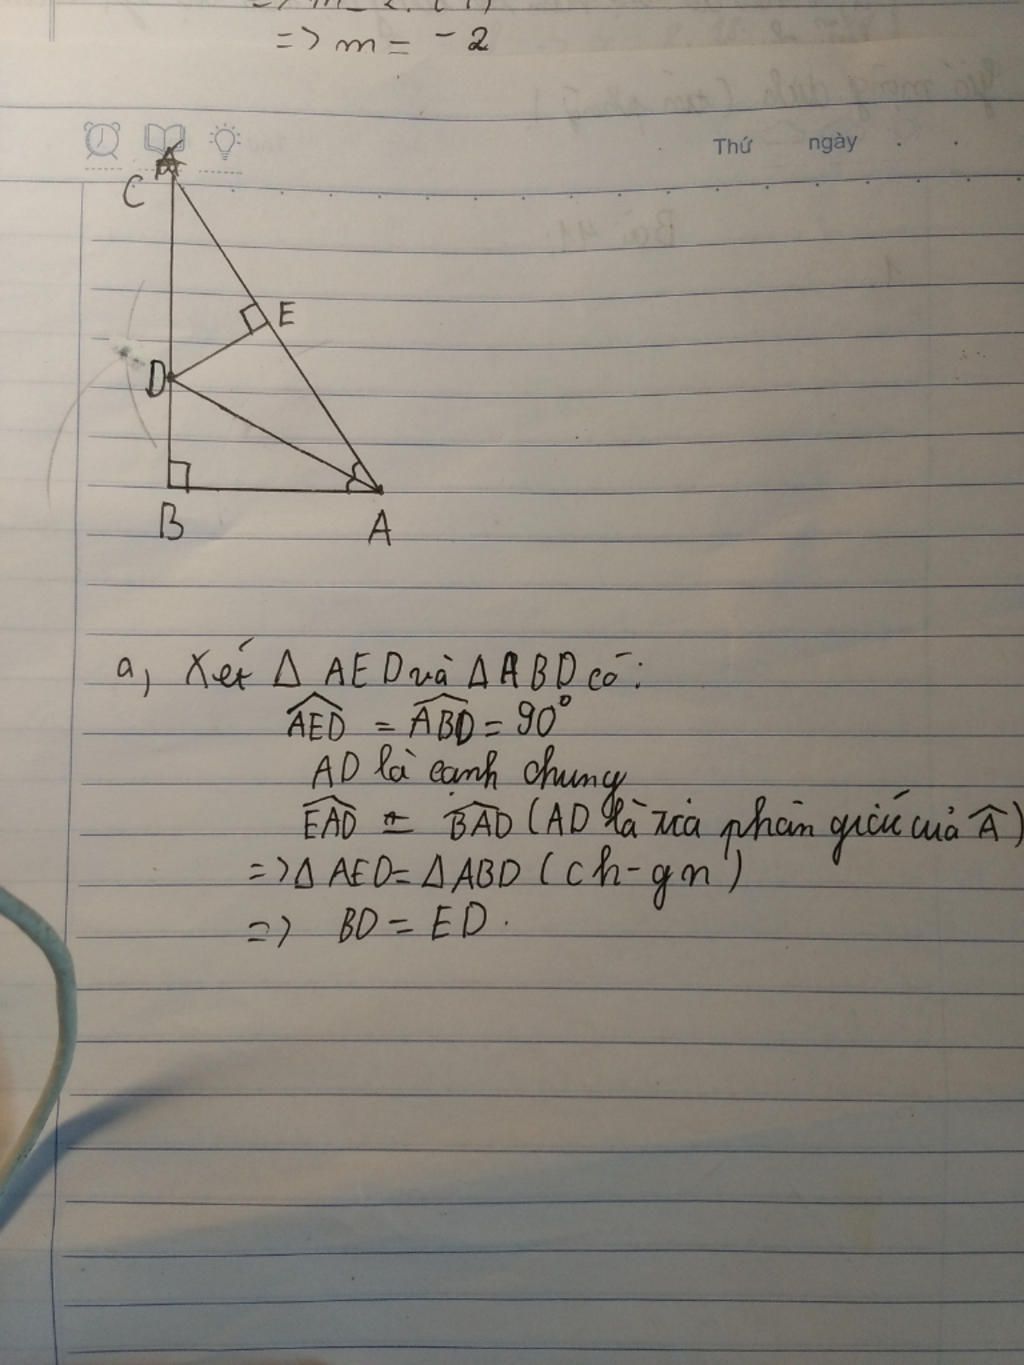 => m = -2
Thứ ngày
C
E
D
B
A
a, Xét Δ AED và Δ ABD có:
AED = ABD = 90°
AD là cạnh chung
EAD = BAD (AD là tia phân giác của A)
=> Δ AED = Δ ABD (ch-gn)
=> BD = ED.